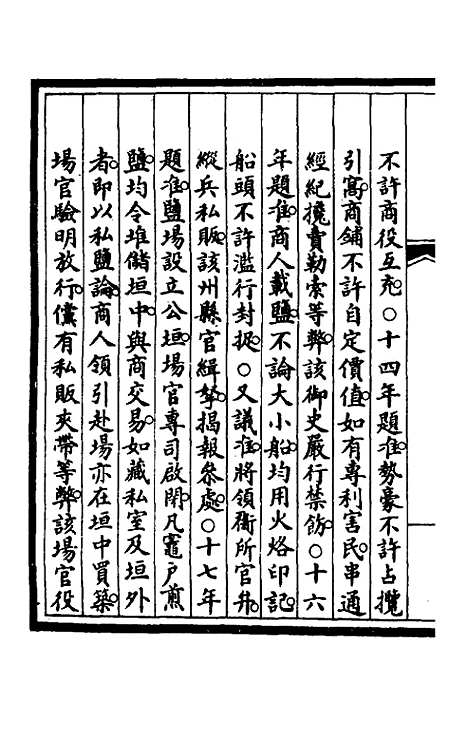 不許商役互充○十四年題准勢豪不許占攬
引窩商鋪不許自定價值如有專利害民串通
經紀攙賣勒索等弊該御史嚴行禁飭○十六
年題准商人載鹽不論大小船均用火烙印記
船頭不許濫行封捉○又議准將領衞所官弁
縱兵私販該州縣官緝拏揭報叅處○十七年
題准鹽場設立公垣場官專司啟閉凡竈戶煎
鹽均令堆儲垣中與商交易如藏私室及垣外
者即以私鹽論商人領引赴場亦在垣中買築
場官驗明放行儻有私販夾帶等弊該場官役